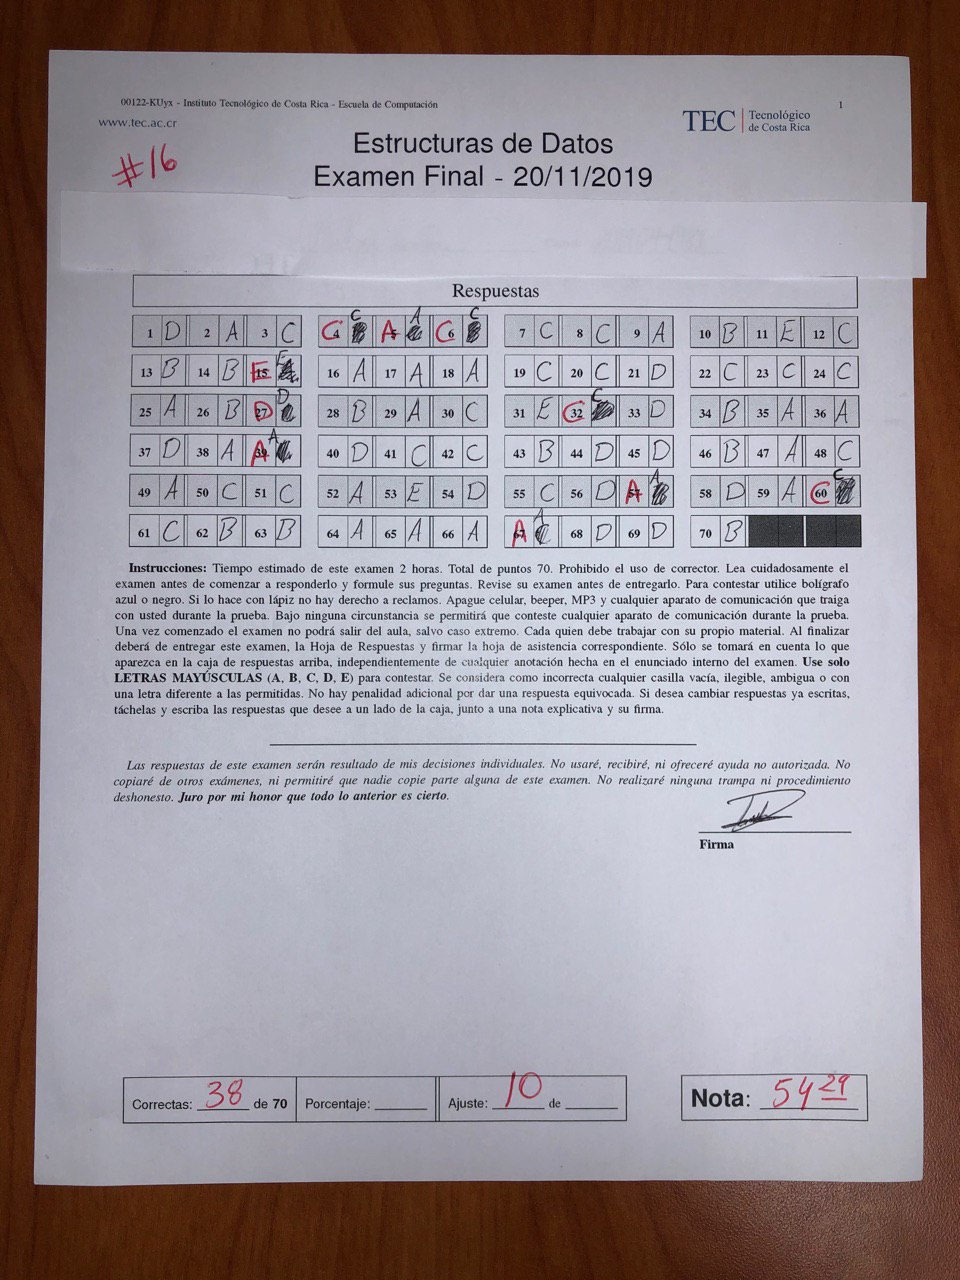 00122-KUyx - Instituto Tecnológico de Costa Rica - Escuela de Computación 1
www.tec.ac.cr
TEC Tecnológico de Costa Rica
#16
Estructuras de Datos
Examen Final - 20/11/2019
Respuestas
1 D 2 A 3 C C 4 C A 5 A C 6 C 7 C 8 C 9 A 10 B 11 E 12 C
13 B 14 B E 15 E 16 A 17 A 18 A 19 C 20 C 21 D 22 C 23 C 24 C
25 A 26 B D 27 D 28 B 29 A 30 C 31 E C 32 C 33 D 34 B 35 A 36 A
37 D 38 A A 39 A 40 D 41 C 42 C 43 B 44 D 45 D 46 B 47 A 48 C
49 A 50 C 51 C 52 A 53 E 54 D 55 C 56 D A 57 A 58 D 59 A C 60 C
61 C 62 B 63 B 64 A 65 A 66 A A 67 A 68 D 69 D 70 B
Instrucciones: Tiempo estimado de este examen 2 horas. Total de puntos 70. Prohibido el uso de corrector. Lea cuidadosamente el
examen antes de comenzar a responderlo y formule sus preguntas. Revise su examen antes de entregarlo. Para contestar utilice bolígrafo
azul o negro. Si lo hace con lápiz no hay derecho a reclamos. Apague celular, beeper, MP3 y cualquier aparato de comunicación que traiga
con usted durante la prueba. Bajo ninguna circunstancia se permitirá que conteste cualquier aparato de comunicación durante la prueba.
Una vez comenzado el examen no podrá salir del aula, salvo caso extremo. Cada quien debe trabajar con su propio material. Al finalizar
deberá de entregar este examen, la Hoja de Respuestas y firmar la hoja de asistencia correspondiente. Sólo se tomará en cuenta lo que
aparezca en la caja de respuestas arriba, independientemente de cualquier anotación hecha en el enunciado interno del examen. Use solo
LETRAS MAYÚSCULAS (A, B, C, D, E) para contestar. Se considera como incorrecta cualquier casilla vacía, ilegible, ambigua o con
una letra diferente a las permitidas. No hay penalidad adicional por dar una respuesta equivocada. Si desea cambiar respuestas ya escritas,
táchelas y escriba las respuestas que desee a un lado de la caja, junto a una nota explicativa y su firma.
Las respuestas de este examen serán resultado de mis decisiones individuales. No usaré, recibiré, ni ofreceré ayuda no autorizada. No
copiaré de otros exámenes, ni permitiré que nadie copie parte alguna de este examen. No realizaré ninguna trampa ni procedimiento
deshonesto. Juro por mi honor que todo lo anterior es cierto.
Firma
Correctas: 38 de 70 Porcentaje: Ajuste: 10 de Nota: 54 29